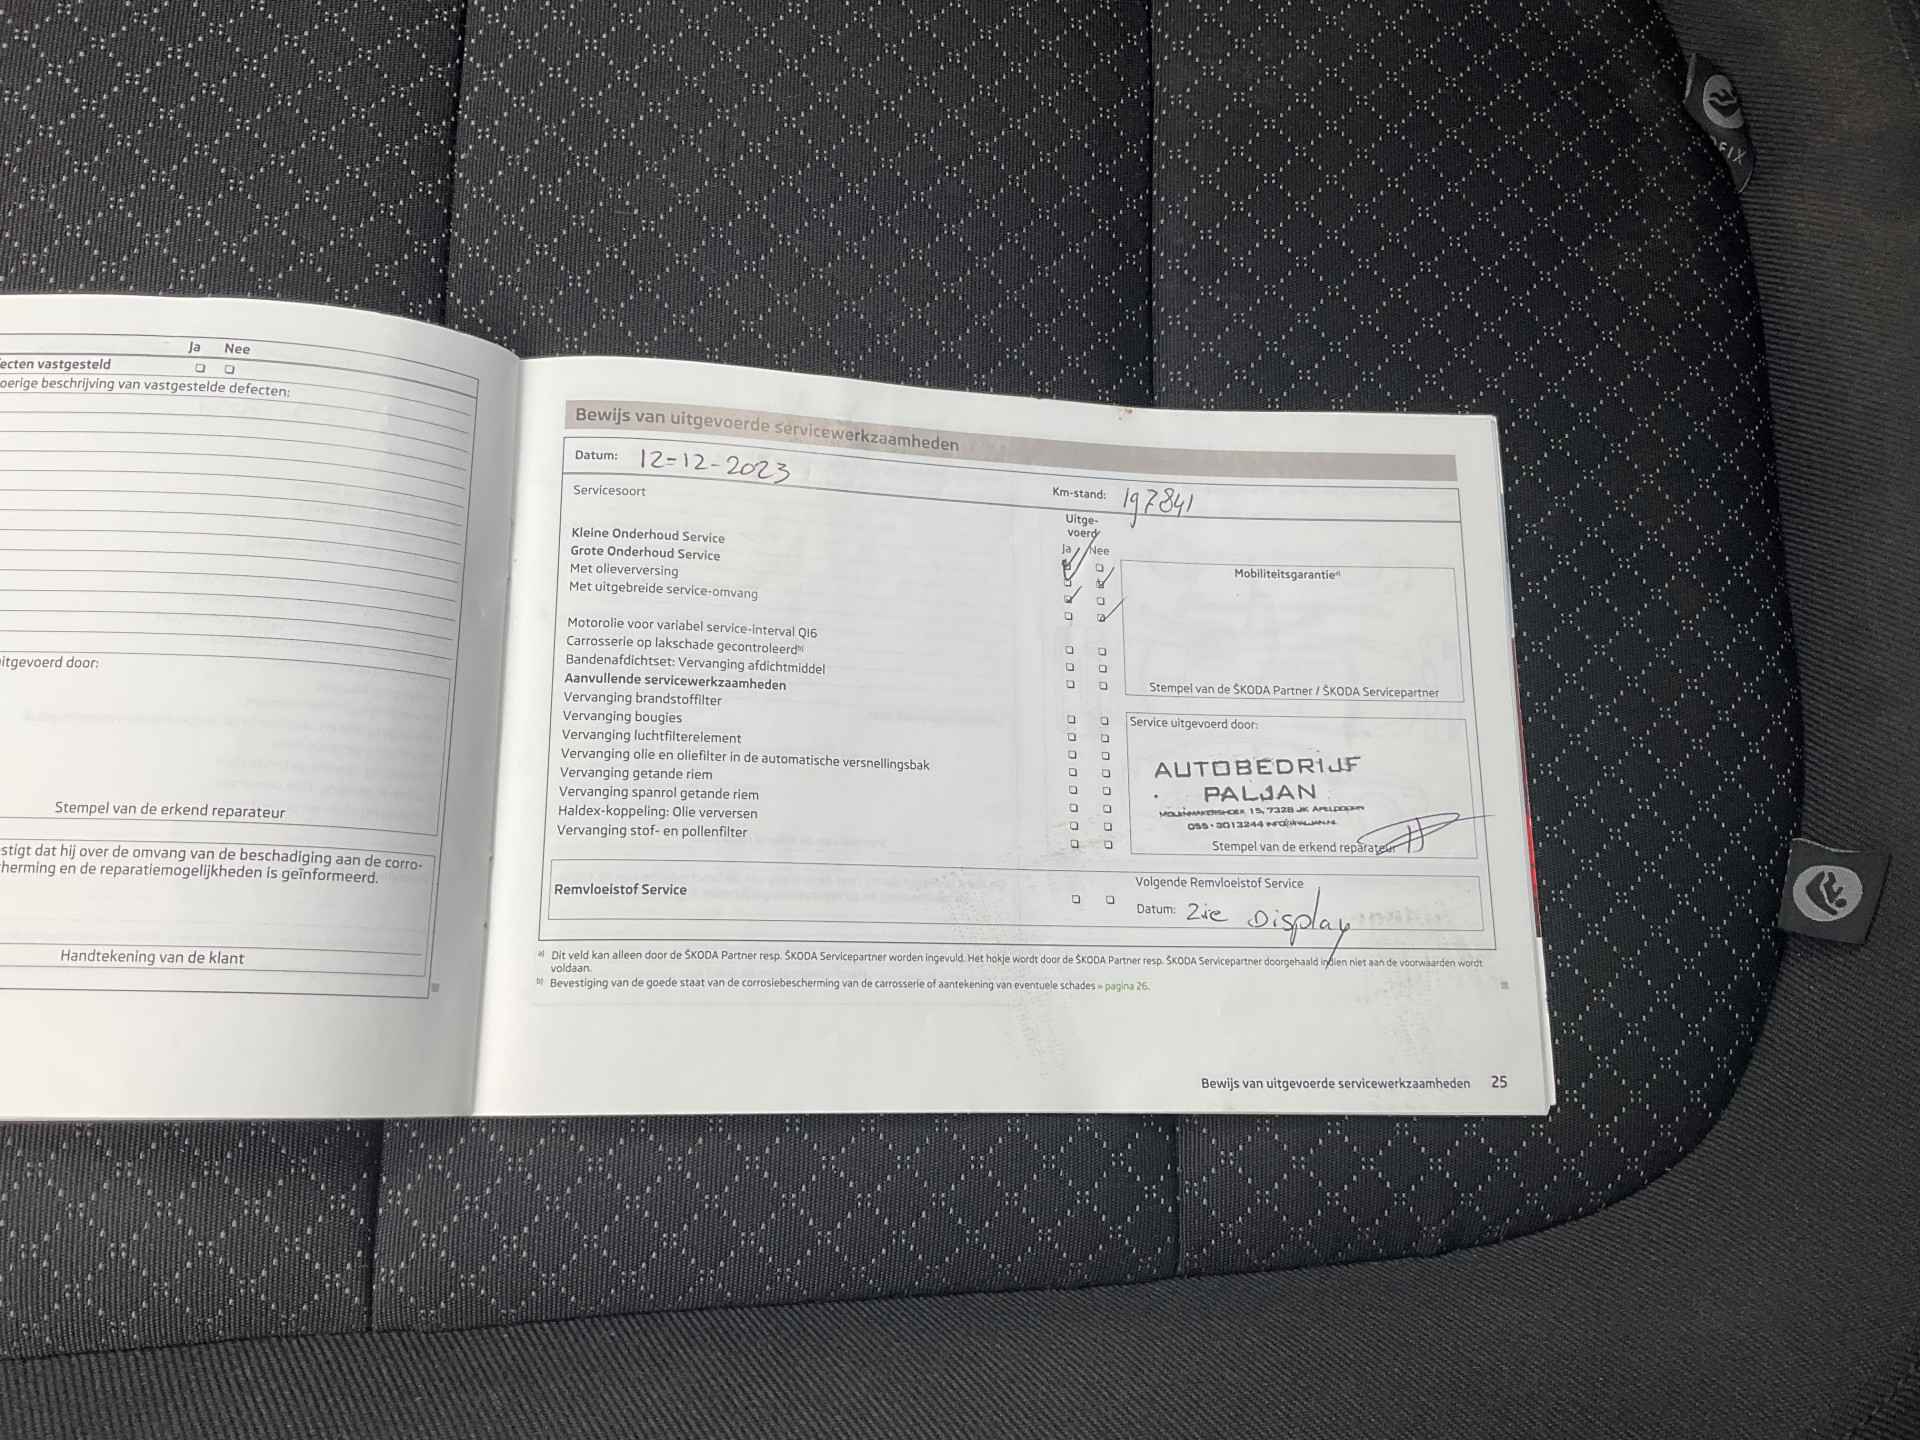 Ja Nee
ecten vastgesteld
oerige beschrijving van vastgestelde defecten:
itgevoerd door:
Stempel van de erkend reparateur
stigt dat hij over de omvang van de beschadiging aan de corro-
herming en de reparatiemogelijkheden is geïnformeerd.
Handtekening van de klant
Bewijs van uitgevoerde servicewerkzaamheden
Datum: 12-12-2023
Km-stand: 197841
Servicesoort
Uitge-
voerd
Ja Nee
Kleine Onderhoud Service
Grote Onderhoud Service
Met olieverversing
Met uitgebreide service-omvang
Motorolie voor variabel service-interval QI6
Carrosserie op lakschade gecontroleerd b)
Bandenafdichtset: Vervanging afdichtmiddel
Aanvullende servicewerkzaamheden
Vervanging brandstoffilter
Vervanging bougies
Vervanging luchtfilterelement
Vervanging olie en oliefilter in de automatische versnellingsbak
Vervanging getande riem
Vervanging spanrol getande riem
Haldex-koppeling: Olie verversen
Vervanging stof- en pollenfilter
Mobiliteitsgarantie a)
Stempel van de ŠKODA Partner / ŠKODA Servicepartner
Service uitgevoerd door:
AUTOBEDRIJF
PALJAN
MOLENMAKERSHOEK 15, 7328 JK APELDOORN
055-3013244 INFO@PALJAN.NL
Stempel van de erkend reparateur
Remvloeistof Service
Volgende Remvloeistof Service
Datum: Zie Display
a) Dit veld kan alleen door de ŠKODA Partner resp. ŠKODA Servicepartner worden ingevuld. Het hokje wordt door de ŠKODA Partner resp. ŠKODA Servicepartner doorgehaald indien niet aan de voorwaarden wordt
voldaan.
b) Bevestiging van de goede staat van de corrosiebescherming van de carrosserie of aantekening van eventuele schades » pagina 26.
Bewijs van uitgevoerde servicewerkzaamheden 25